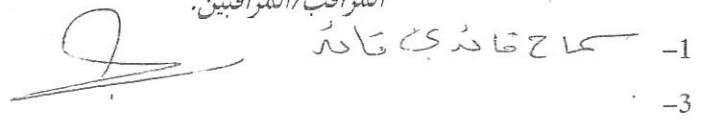 المراقب/المراقبين:
1- سماح قائدي قائد
3-